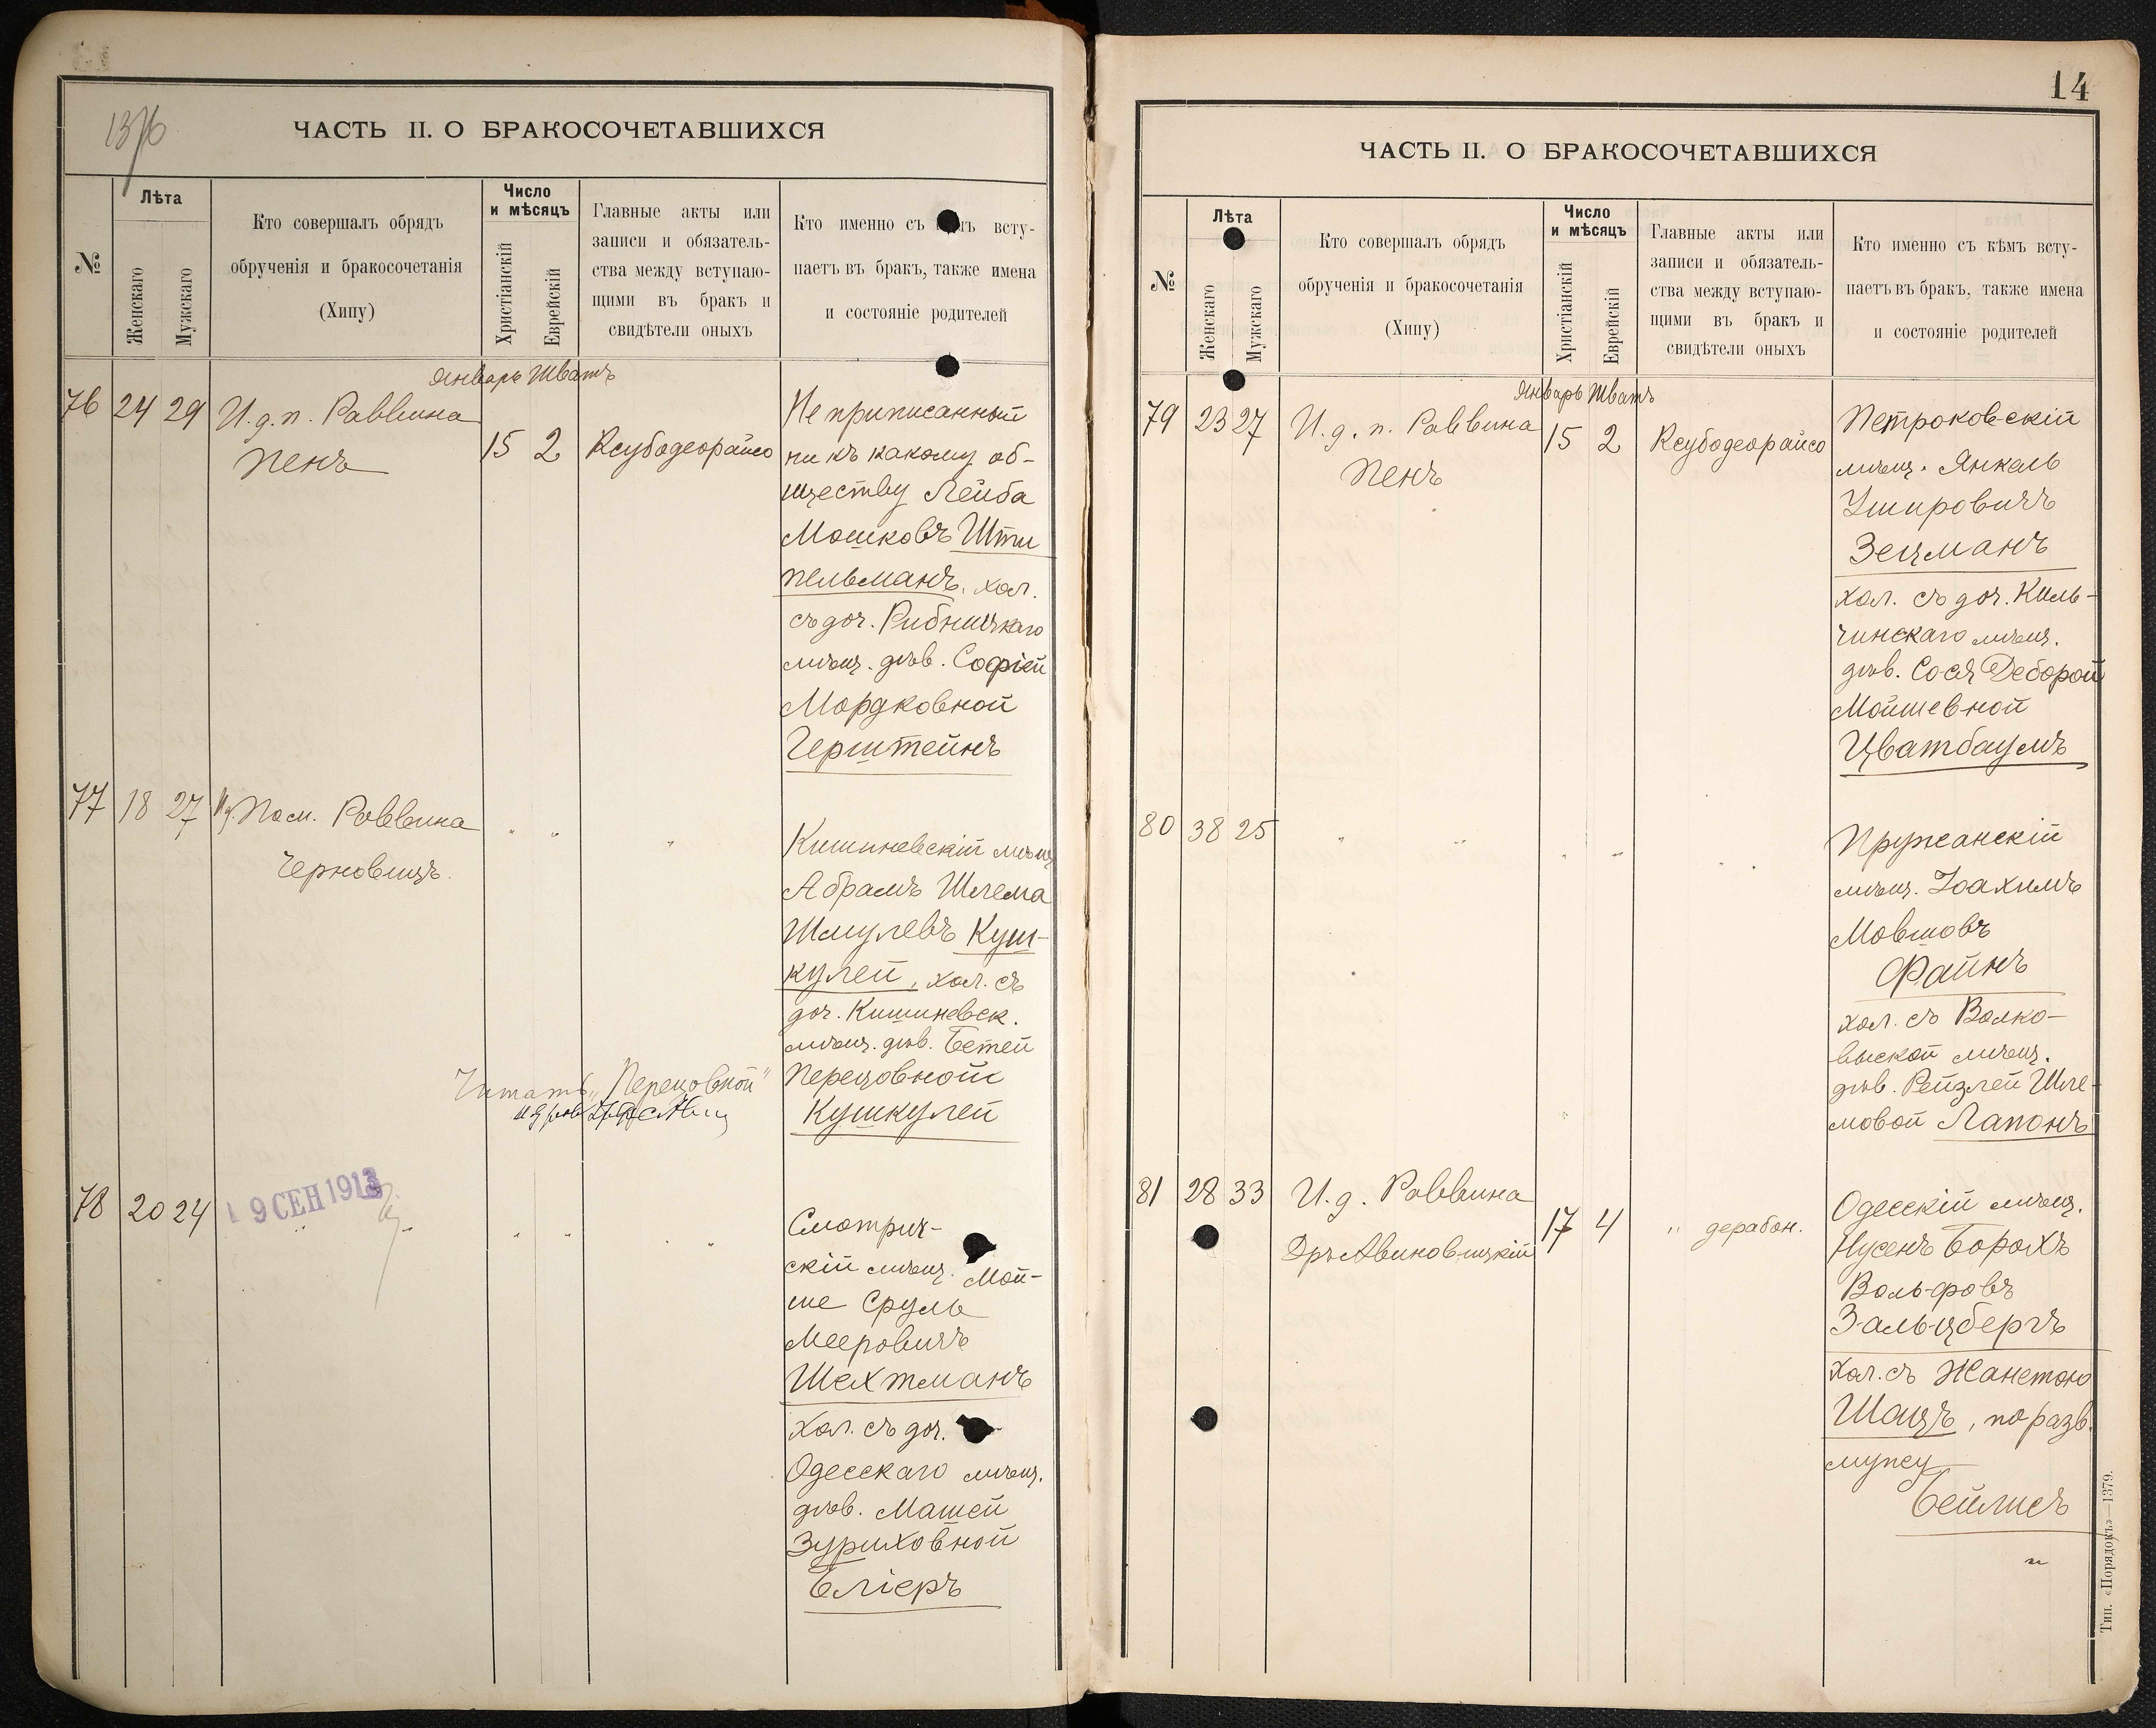 1376
ЧАСТЬ II. О БРАКОСОЧЕТАВШИХСЯ
№
Лѣта
Женскаго
Мужскаго
Кто совершалъ обрядъ
обрученія и бракосочетанія
(Хипу)
Число
и мѣсяцъ
Христіанскій
Еврейскій
Главные акты или
записи и обязатель-
ства между вступаю-
щими въ бракъ и
свидѣтели оныхъ
Кто именно съ всту-
паетъ въ бракъ, также имена
и состояніе родителей
Январь Шватъ
76 24 29 И. д. п. Раввина
Пенъ
15 2 Ксубодеорайсо
Не приписанный
ни къ какому об-
ществу Лейба
Мошковъ Шти
пельманъ, хол.
съ доч. Рибницкаго
мѣщ. дѣв. Софіей
Мордковной
Герштейнъ
77 18 27 И д. Пом. Раввина
Черновицъ.
" " "
Кишиневскій мѣщ
Абрамъ Шлема
Шмулевъ Куш-
кулей, хол. съ
доч. Кишиневск.
мѣщ. дѣв. Бетей
Перецовной
Кушкулей
Читать „Перецовной"
78 20 24
19 СЕН 1913
" " "
Смотрич-
скій мѣщ. Мой-
ше Сруль
Мееровичъ
Шехтманъ
хол. съ доч.
Одесскаго мѣщ.
дѣв. Машей
Зуриховной
Бліеръ
14
ЧАСТЬ II. О БРАКОСОЧЕТАВШИХСЯ
№
Лѣта
Женскаго
Мужскаго
Кто совершалъ обрядъ
обрученія и бракосочетанія
(Хипу)
Число
и мѣсяцъ
Христіанскій
Еврейскій
Главные акты или
записи и обязатель-
ства между вступаю-
щими въ бракъ и
свидѣтели оныхъ
Кто именно съ кѣмъ всту-
паетъ въ бракъ, также имена
и состояніе родителей
Январь Шватъ
79 23 27 И. д. п. Раввина
Пенъ
15 2 Ксубодеорайсо
Петроковскій
мѣщ. Янкель
Ушировичъ
Зецманъ
хол. съ доч. Киль-
чинскаго мѣщ.
дѣв. Сося Деборой
Мойшевной
Цватбаумъ
80 38 25 " " " "
Пружанскій
мѣщ. Іоахимъ
Мовшовъ
Файнъ
хол. съ Волко-
выской мѣщ.
дѣв. Рейзлей Шле-
мовой Лапонъ
81 28 33 И. д. Раввина
Дръ Авиновицкій
17 4 " дерабон.
Одесскій мѣщ.
Нусенъ Борохъ
Вольфовъ
Зальцбергъ
хол. съ Жанетою
Шацъ, по разв.
мужу
Бейлисъ
Тип. «Порядокъ»—1379.